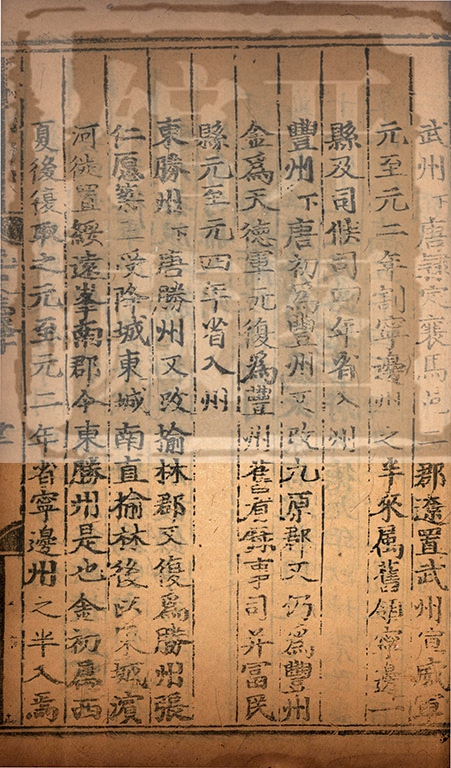 武州下唐隸定襄馬邑二郡遼置武州宣威軍
元至元二年割寧邊州之半來屬舊領寧邊一
縣及司候司四年省入州
豐州下唐初為豐州又改九原郡又仍為豐州
金為天德軍元復為豐州舊有錄事司并富民
縣元至元四年省入州
東勝州下唐勝州又改榆林郡又復為勝州張
仁愿築三受降城東城南直榆林後以東城濱
河徙置綏遠峯南郡今東勝州是也金初屬西
夏後復取之元至元二年省寧邊州之半入焉